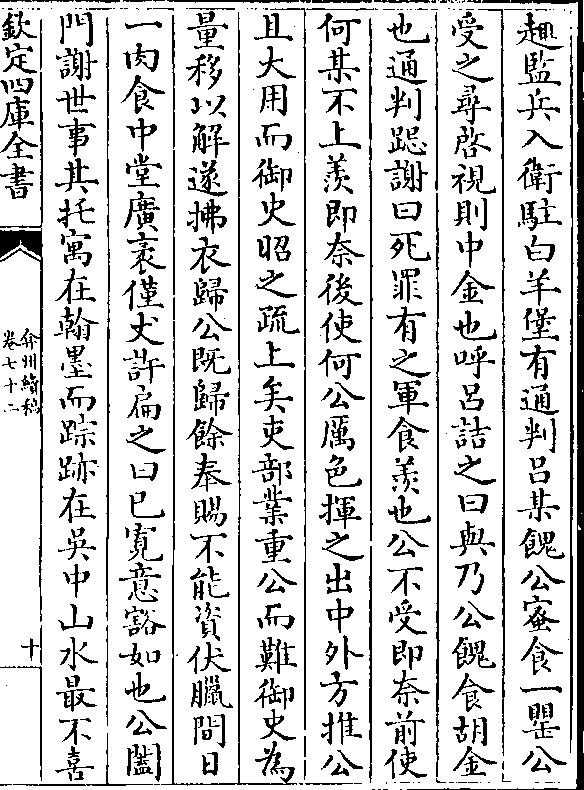 趣監兵入衛駐白羊堡有通判吕某餽公蜜食一罌公
受之尋啓視則中金也呼吕詰之曰與乃公餽食胡金
也通判跽謝曰死罪有之軍食羨也公不受即奈前使
何某不上羨即奈後使何公厲色揮之出中外方推公
且大用而御史昭之疏上矣吏部業重公而難御史為
量移以解遂拂衣歸公既歸餘奉賜不能資伏臘間日
一肉食中堂廣袤僅丈許扁之曰已寛意豁如也公闔
門謝世事其托寓在翰墨而踪跡在吳中山水最不喜
欽定四庫全書
弇州續稿
卷七十二
十